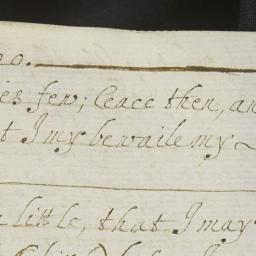 20.
ies few; Ceace then, an
t I my bewaile my ~
little, that I may